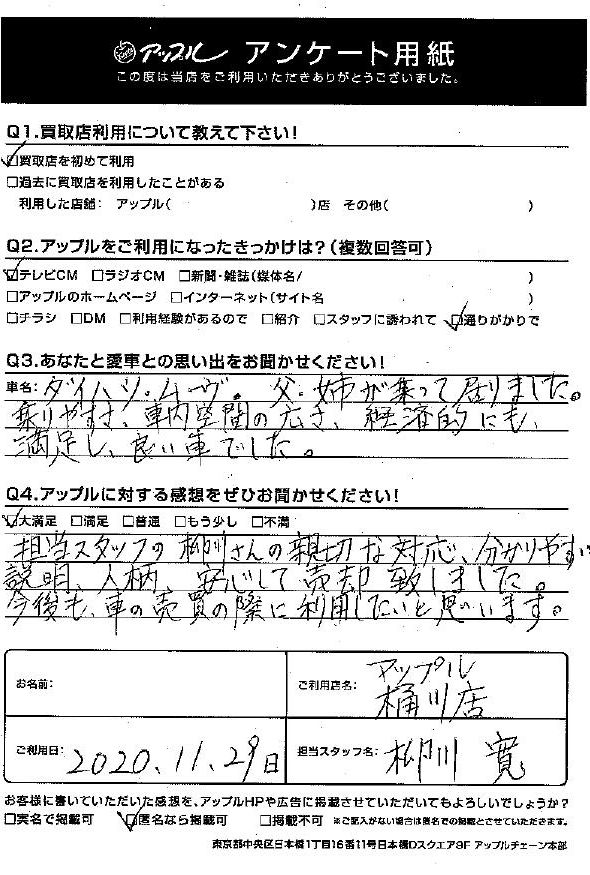 アップル アンケート用紙
この度は当店をご利用いただきありがとうございました。
Q1.買取店利用について教えて下さい！
☑買取店を初めて利用
□過去に買取店を利用したことがある
利用した店舗： アップル（ ）店 その他（ ）
Q2.アップルをご利用になったきっかけは？（複数回答可）
☑テレビCM □ラジオCM □新聞・雑誌（媒体名/ ）
□アップルのホームページ □インターネット（サイト名 ）
□チラシ □DM □利用経験があるので □紹介 □スタッフに誘われて ☑通りがかりで
Q3.あなたと愛車との思い出をお聞かせください！
車名：ダイハツ・ムーヴ。父・姉が乗って居りました。
乗りやすさ、車内空間の広さ、経済的にも、
満足し、良い車でした。
Q4.アップルに対する感想をぜひお聞かせください！
☑大満足 □満足 □普通 □もう少し □不満
担当スタッフの柳川さんの親切な対応、分かりやすい
説明、人柄、安心して売却致しました。
今後も、車の売買の際に利用したいと思います。
お名前：
ご利用店名： アップル
桶川店
ご利用日： 2020.11.29日
担当スタッフ名： 柳川 寛
お客様に書いていただいた感想を、アップルHPや広告に掲載させていただいてもよろしいでしょうか？
□実名で掲載可 ☑匿名なら掲載可 □掲載不可 ※ご記入がない場合は匿名での掲載とさせていただきます。
東京都中央区日本橋1丁目16番11号日本橋Dスクエア3F アップルチェーン本部